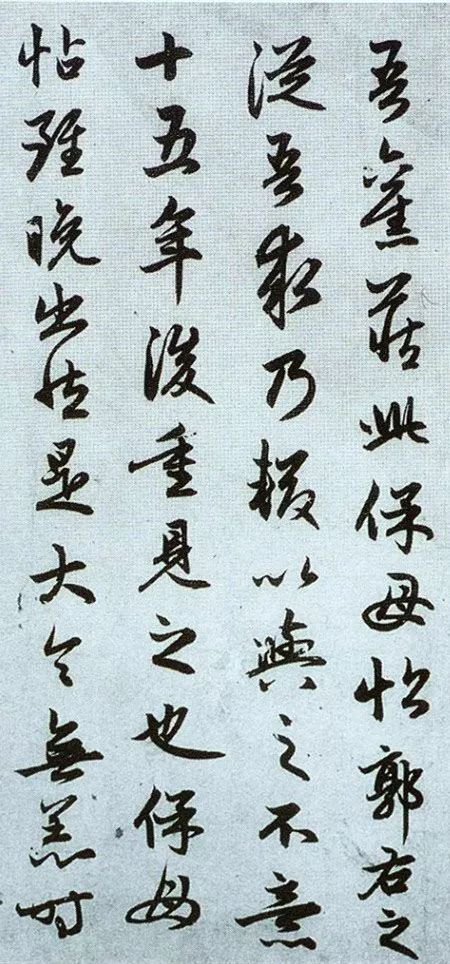 吾舊藏此保母帖郭右之
從吾求乃輟以與之不意
十五年後重見之也保母
帖雖晚出然是大令無恙時